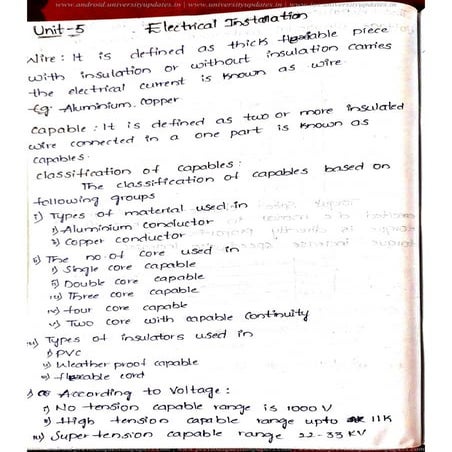 www.android.universityupdates.in | www.universityupdates.in | www.ios.universityupdates.in
Unit-5 : Electrical Instalation
Wire: It is defined as thick flexiable piece
with insulation or without insulation carries
the electrical current is known as wire.
Eg: Aluminium. copper
capable: It is defined as two or more insulated
wire connected in a one part is known as
capables.
classification of capables:
The classification of capables based on
following groups
i) Types of material used in
i) Aluminium conductor
ii) copper conductor
ii) The no. of core used in
i) Single core capable
ii) Double core capable
iii) Three core capable
iv) four core capable
v) Two core with capable continuity
iii) Types of insulators used in
i) PVC
ii) Weather proof capable
iii) flexable cord
According to Voltage:
i) No tension capable range is 1000 V
ii) High tension capable range upto 11K
iii) Super tension capable range 22-33 KV